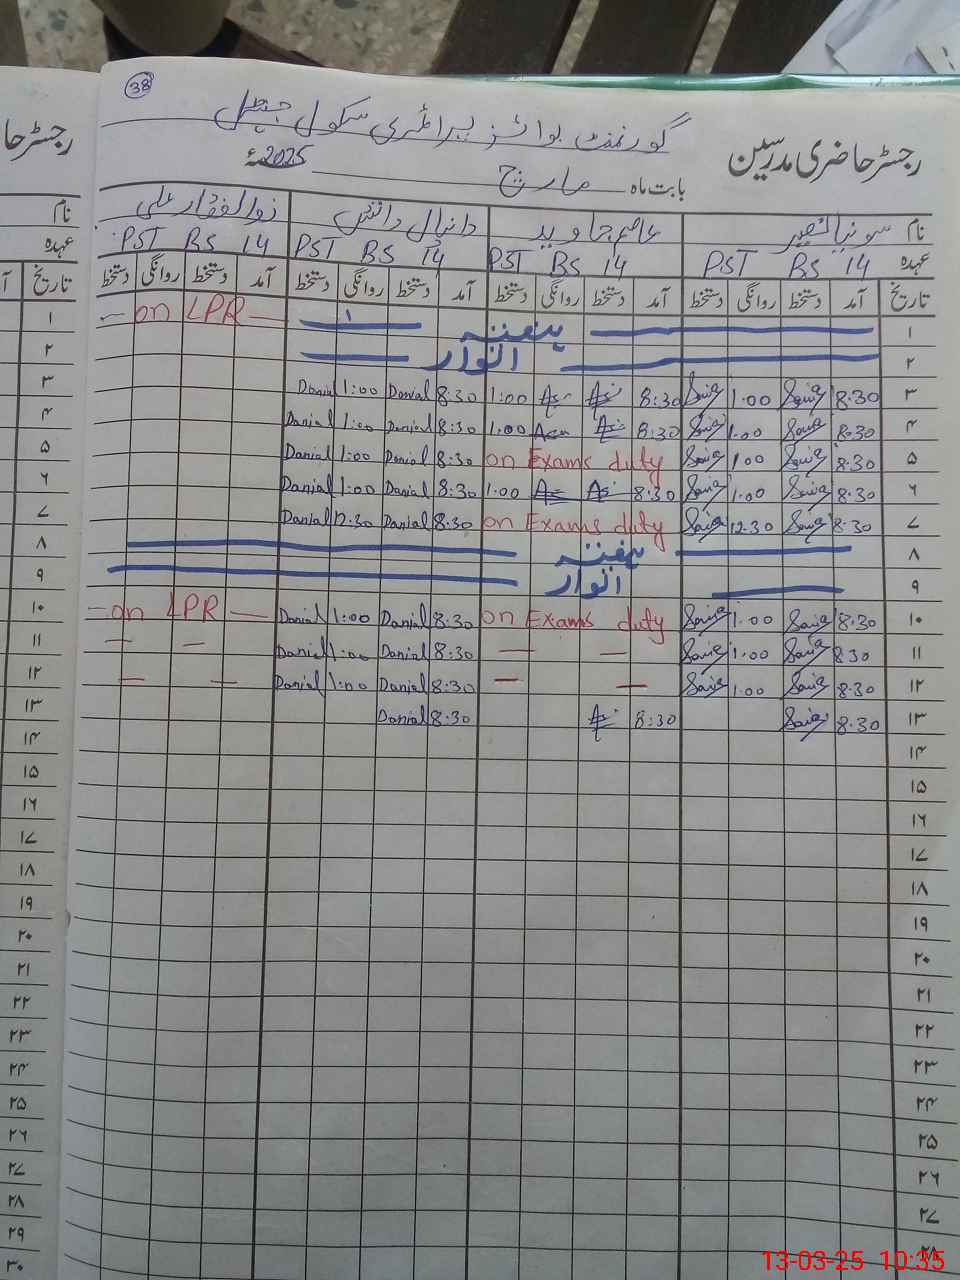 38
گورنمنٹ بوائز پرائمری سکول
رجسٹر حاضری مدرسین
بابت ماہ مارچ 2025ء
نام سونیا نصیر عاصم جاوید دانیال دانش ذوالفقار علی
عہدہ PST BS 14 PST BS 14 PST BS 14 PST BS 14
تاریخ آمد دستخط روانگی دستخط آمد دستخط روانگی دستخط آمد دستخط روانگی دستخط آمد دستخط روانگی دستخط
۱ ہفتہ on LPR
۲ اتوار
۳ 8.30 Sonia 1.00 Sonia 8:30 1:00 8:30 Danial 1:00 Danial
۴ 8.30 Sonia 1.00 Sonia 8:30 1.00 8:30 Danial 1:00 Danial
۵ 8.30 Sonia 1.00 Sonia on Exams duty 8:30 Danial 1:00 Danial
۶ 8.30 Sonia 1.00 Sonia 8.30 1.00 8:30 Danial 1:00 Danial
۷ 8.30 Sonia 12.30 Sonia on Exams duty 8:30 Danial 12:30 Danial
۸ ہفتہ
۹ اتوار
۱۰ 8.30 Sonia 1.00 Sonia on Exams duty 8:30 Danial 1:00 Danial on LPR
۱۱ 8.30 Sonia 1.00 Sonia — — 8:30 Danial 1:00 Danial — —
۱۲ 8.30 Sonia 1.00 Sonia — — 8:30 Danial 1:00 Danial — —
۱۳ 8.30 Sonia 8:30 8:30 Danial
۱۴
۱۵
۱۶
۱۷
۱۸
۱۹
۲۰
۲۱
۲۲
۲۳
۲۴
۲۵
۲۶
۲۷
۲۸
رجسٹر حا
نام
عہدہ
تاریخ آ
۱
۲
۳
۴
۵
۶
۷
۸
۹
۱۰
۱۱
۱۲
۱۳
۱۴
۱۵
۱۶
۱۷
۱۸
۱۹
۲۰
۲۱
۲۲
۲۳
۲۴
۲۵
۲۶
۲۷
۲۸
۲۹
۳۰
13-03-25 10:35